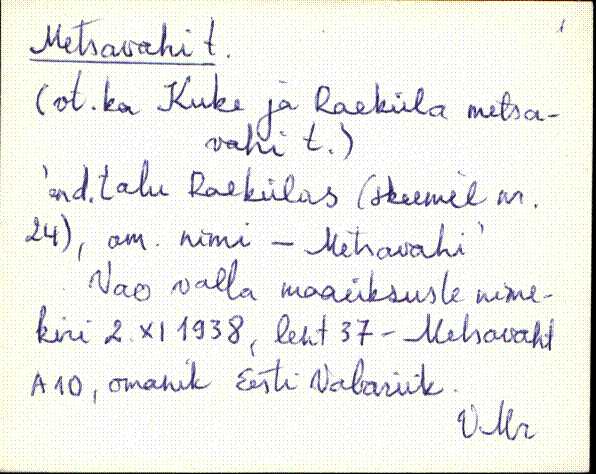 1
Metsavahi t.
(vt. ka Kuke ja Raeküla metsa-
vahi t.)
'end. talu Raekülas (skeemil nr.
24), om. nimi – Metsavahi'
Vao valla maaüksuste nime-
kiri 2. XI 1938, leht 37 – Metsavaht
A 10, omanik Eesti Vabariik.
V. Mr